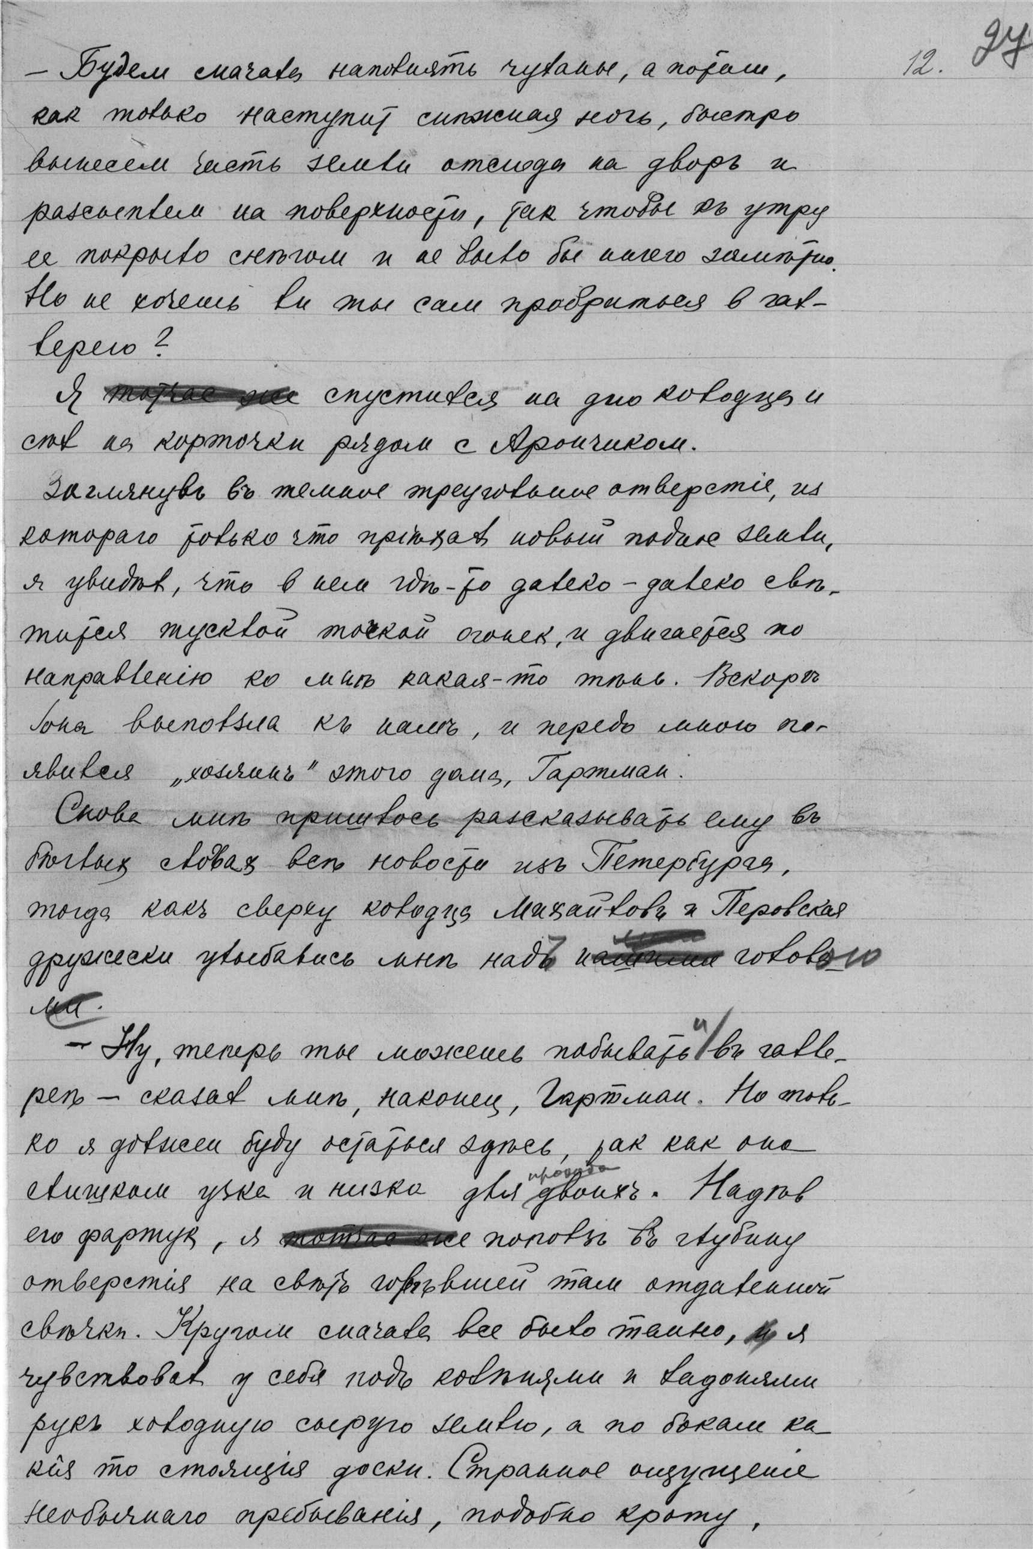 12. 27
— Будем сначала наполнять чуланы, а потом,
как только наступит снѣжная ночь, быстро
вынесем часть земли отсюда на дворъ и
разсыплем на поверхности, так чтобы къ утру
ее покрыло снѣгом и не было бы ничего замѣтно.
Но не хочешь ли ты сам пробраться в гал-
лерею?
Я тотчас же спустился на дно колодца и
сѣл на корточки рядом с Арончиком.
Заглянувъ въ темное треугольное отверстіе, из
котораго только что пріѣхал новый поднос земли,
я увидѣл, что в нем гдѣ-то далеко-далеко свѣ-
тится тусклой точкой огонек, и двигается по
направленію ко мнѣ какая-то тѣнь. Вскорѣ
она выползла къ намъ, и передо мною по-
явился „хозяинъ" этого дома, Гартман.
Снова мнѣ пришлось разсказывать ему въ
бѣглых словах всѣ новости изъ Петербурга,
тогда какъ сверху колодца Михайловъ и Перовская
дружески улыбались мнѣ надъ нашими голово
ю
ми.
— Ну, теперь ты можешь побывать и въ галле-
реѣ — сказал мнѣ, наконец, Гартман. Но толь-
ко я должен буду остаться здѣсь, так как она
прохода
слишком узка и низка для двоихъ. Надѣв
его фартук, я тотчас же пополз въ глубину
отверстія на свѣтъ горѣвшей там отдаленной
свѣчки. Кругом сначала все было темно, и я
чувствовал у себя подъ колѣнями и ладонями
рукъ холодную сырую землю, а по бокам ка
кія то стоящія доски. Странное ощущеніе
необычнаго пребыванія, подобно кроту,